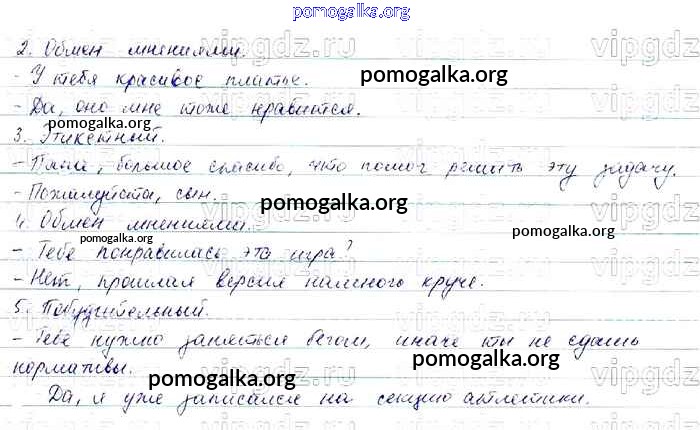 pomogalka.org
2. Обмен мнениями.
- У тебя красивое платье.
pomogalka.org
- Да, оно мне тоже нравится.
pomogalka.org
3. Этикетный.
- Папа, большое спасибо, что помог решить эту задачу.
- Пожалуйста, сын.
pomogalka.org
4. Обмен мнениями.
pomogalka.org
pomogalka.org
- Тебе понравилась эта игра?
- Нет, прошлая версия намного круче.
5. Побудительный.
- Тебе нужно заняться бегом, иначе ты не сдашь
нормативы.
pomogalka.org
pomogalka.org
Да, я уже записался на секцию атлетики.
vipgdz.ru